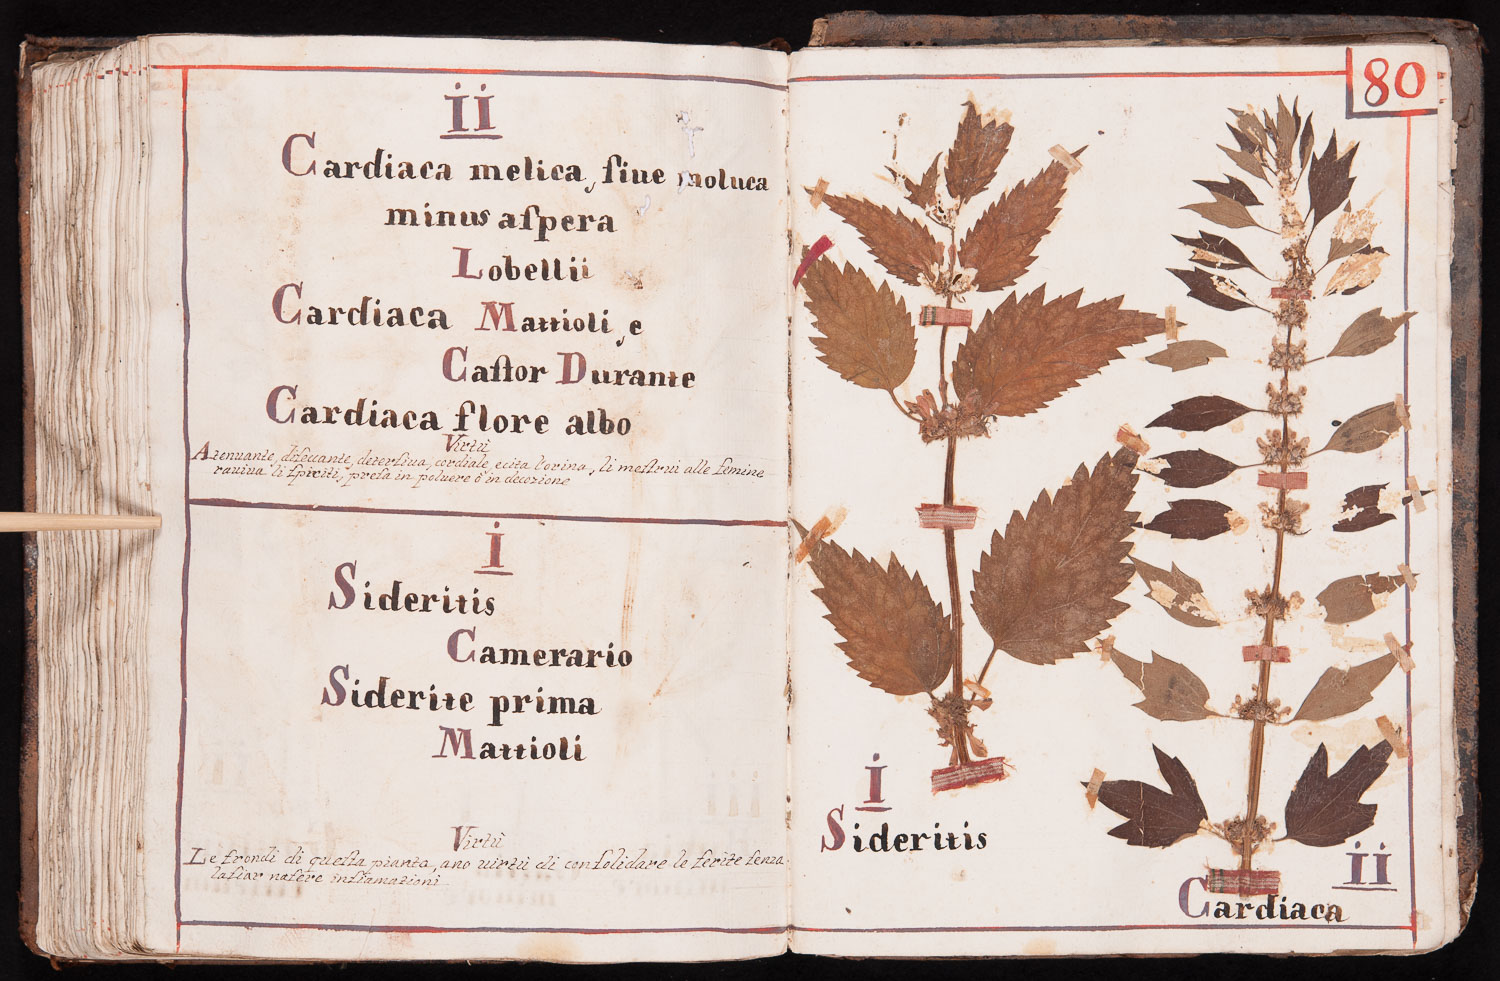 ii
Cardiaca melica, ſiue moluca
minus aſpera
Lobellii
Cardiaca Mattioli, e
Caſtor Durante
Cardiaca flore albo
Virtù
Atenuante, diſeccante, deterſiua, cordiale, ecita l'orina, li meſtrui alle femine
rauiua li ſpiriti, preſa in poluere ò in decozione
i
Sideritis
Camerario
Siderite prima
Mattioli
Virtù
Le frondi di queſta pianta, ano uirtù di conſolidare le ferite ſenza
laſiar naſere inflamazioni
80
i
Sideritis
ii
Cardiaca